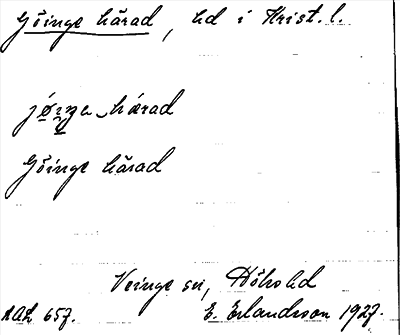 Göinge härad, hd i Krist. l.
härad
Göinge härad
Veinge sn, Höks hd
AAL 657. E. Erlandsson 1927.